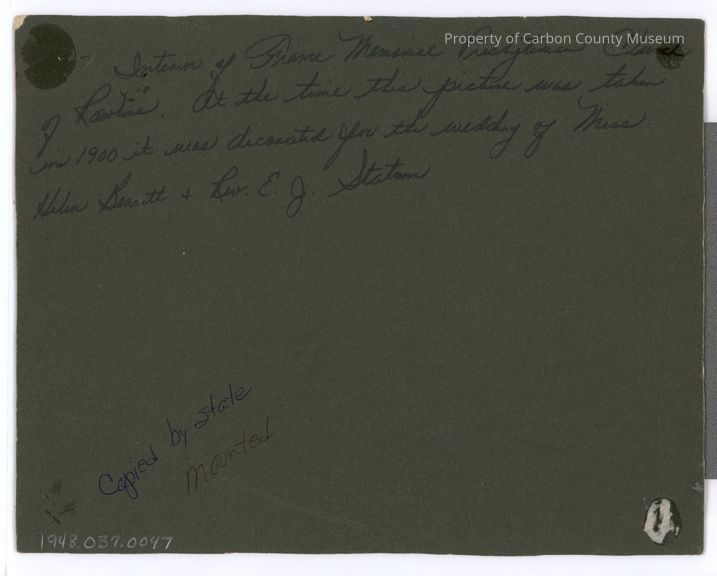 Property of Carbon County Museum
Interior of France Memorial Presbyterian Church
of Rawlins. At the time this picture was taken
in 1900 it was decorated for the wedding of Miss
Helen Bennett + Rev. E. J.
Copied by state
Mounted
1948.037.0047